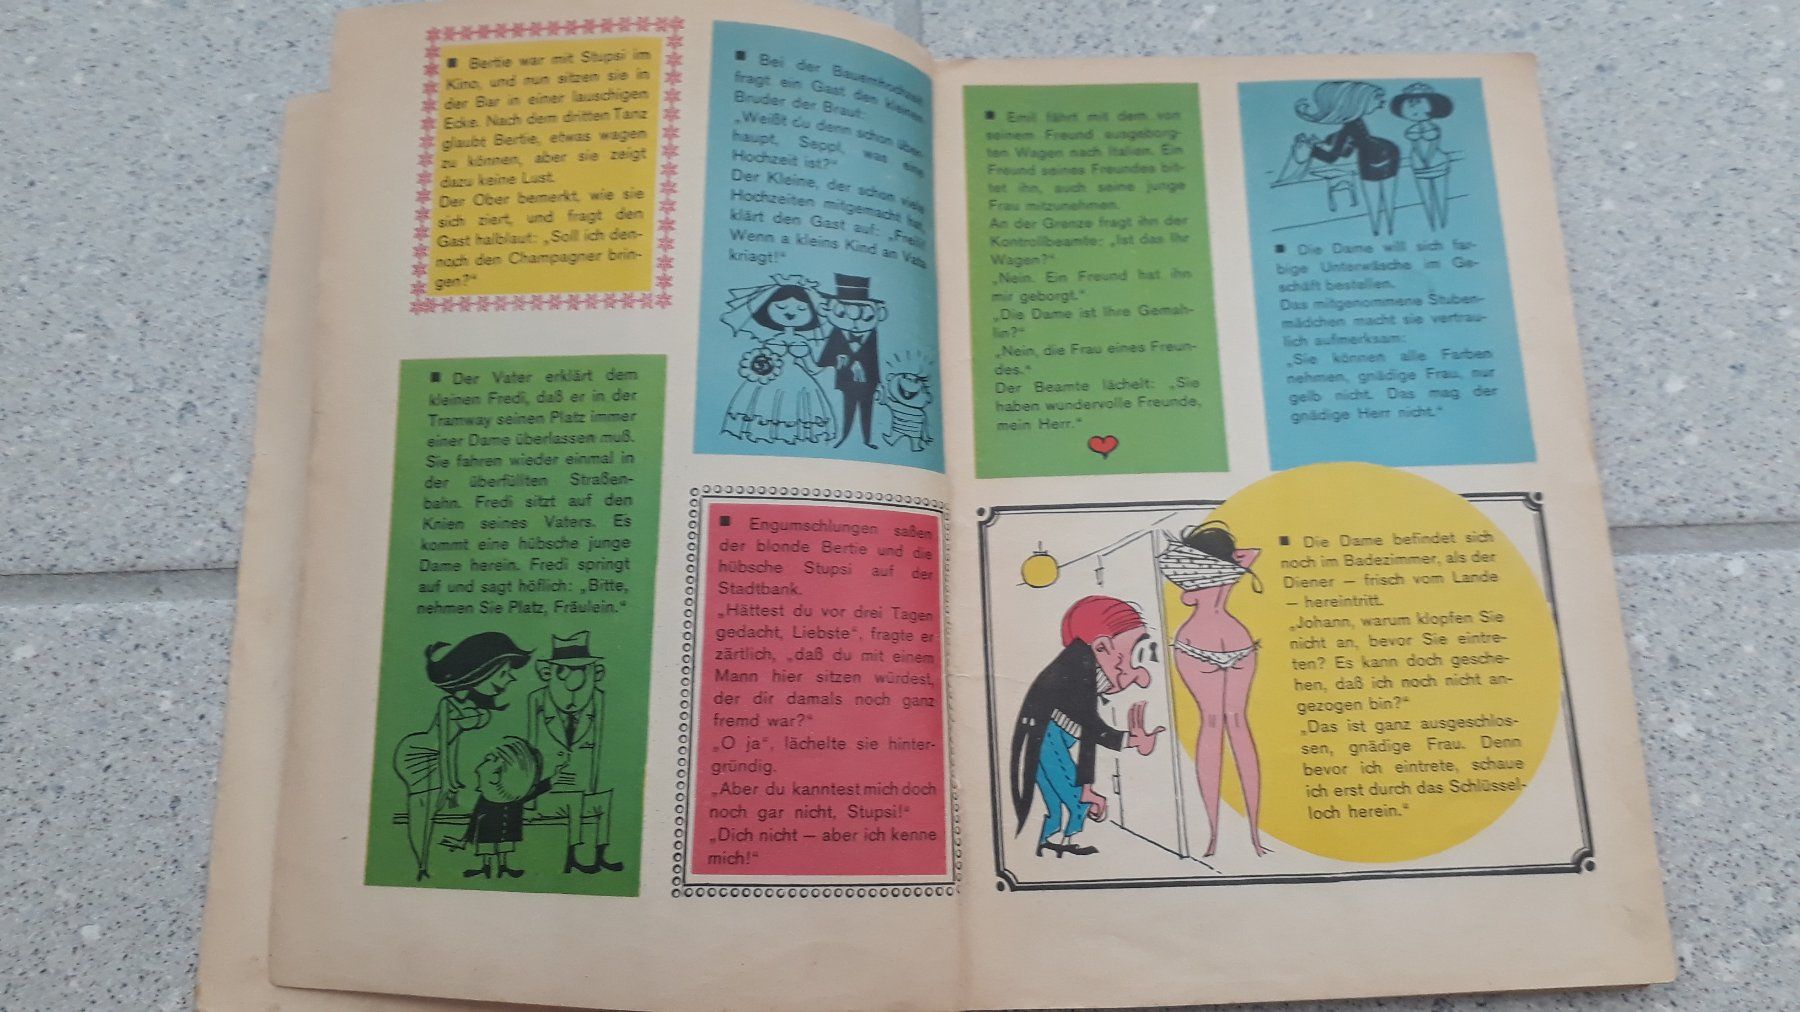 ■ Bertie war mit Stupsi im
Kino, und nun sitzen sie in
der Bar in einer lauschigen
Ecke. Nach dem dritten Tanz
glaubt Bertie, etwas wagen
zu können, aber sie zeigt
dazu keine Lust.
Der Ober bemerkt, wie sie
sich ziert, und fragt den
Gast halblaut: „Soll ich den-
noch den Champagner brin-
gen?"
■ Der Vater erklärt dem
kleinen Fredi, daß er in der
Tramway seinen Platz immer
einer Dame überlassen muß.
Sie fahren wieder einmal in
der überfüllten Straßen-
bahn. Fredi sitzt auf den
Knien seines Vaters. Es
kommt eine hübsche junge
Dame herein. Fredi springt
auf und sagt höflich: „Bitte,
nehmen Sie Platz, Fräulein."
■ Bei der Bauernhochzeit
fragt ein Gast den kleinen
Bruder der Braut:
„Weißt du denn schon über-
haupt, Seppl, was eine
Hochzeit ist?"
Der Kleine, der schon viele
Hochzeiten mitgemacht hat,
klärt den Gast auf: „Freili!
Wenn a kleins Kind an Vata
kriagt!"
■ Engumschlungen saßen
der blonde Bertie und die
hübsche Stupsi auf der
Stadtbank.
„Hättest du vor drei Tagen
gedacht, Liebste", fragte er
zärtlich, „daß du mit einem
Mann hier sitzen würdest,
der dir damals noch ganz
fremd war?"
„O ja", lächelte sie hinter-
gründig.
„Aber du kanntest mich doch
noch gar nicht, Stupsi!"
„Dich nicht – aber ich kenne
mich!"
■ Emil fährt mit dem von
seinem Freund ausgeborg-
ten Wagen nach Italien. Ein
Freund seines Freundes bit-
tet ihn, auch seine junge
Frau mitzunehmen.
An der Grenze fragt ihn der
Kontrollbeamte: „Ist das Ihr
Wagen?"
„Nein. Ein Freund hat ihn
mir geborgt."
„Die Dame ist Ihre Gemah-
lin?"
„Nein, die Frau eines Freun-
des."
Der Beamte lächelt: „Sie
haben wundervolle Freunde,
mein Herr."
■ Die Dame will sich far-
bige Unterwäsche im Ge-
schäft bestellen.
Das mitgenommene Stuben-
mädchen macht sie vertrau-
lich aufmerksam:
„Sie können alle Farben
nehmen, gnädige Frau, nur
gelb nicht. Das mag der
gnädige Herr nicht."
■ Die Dame befindet sich
noch im Badezimmer, als der
Diener – frisch vom Lande
– hereintritt.
„Johann, warum klopfen Sie
nicht an, bevor Sie eintre-
ten? Es kann doch gesche-
hen, daß ich noch nicht an-
gezogen bin?"
„Das ist ganz ausgeschlos-
sen, gnädige Frau. Denn
bevor ich eintrete, schaue
ich erst durch das Schlüssel-
loch herein."